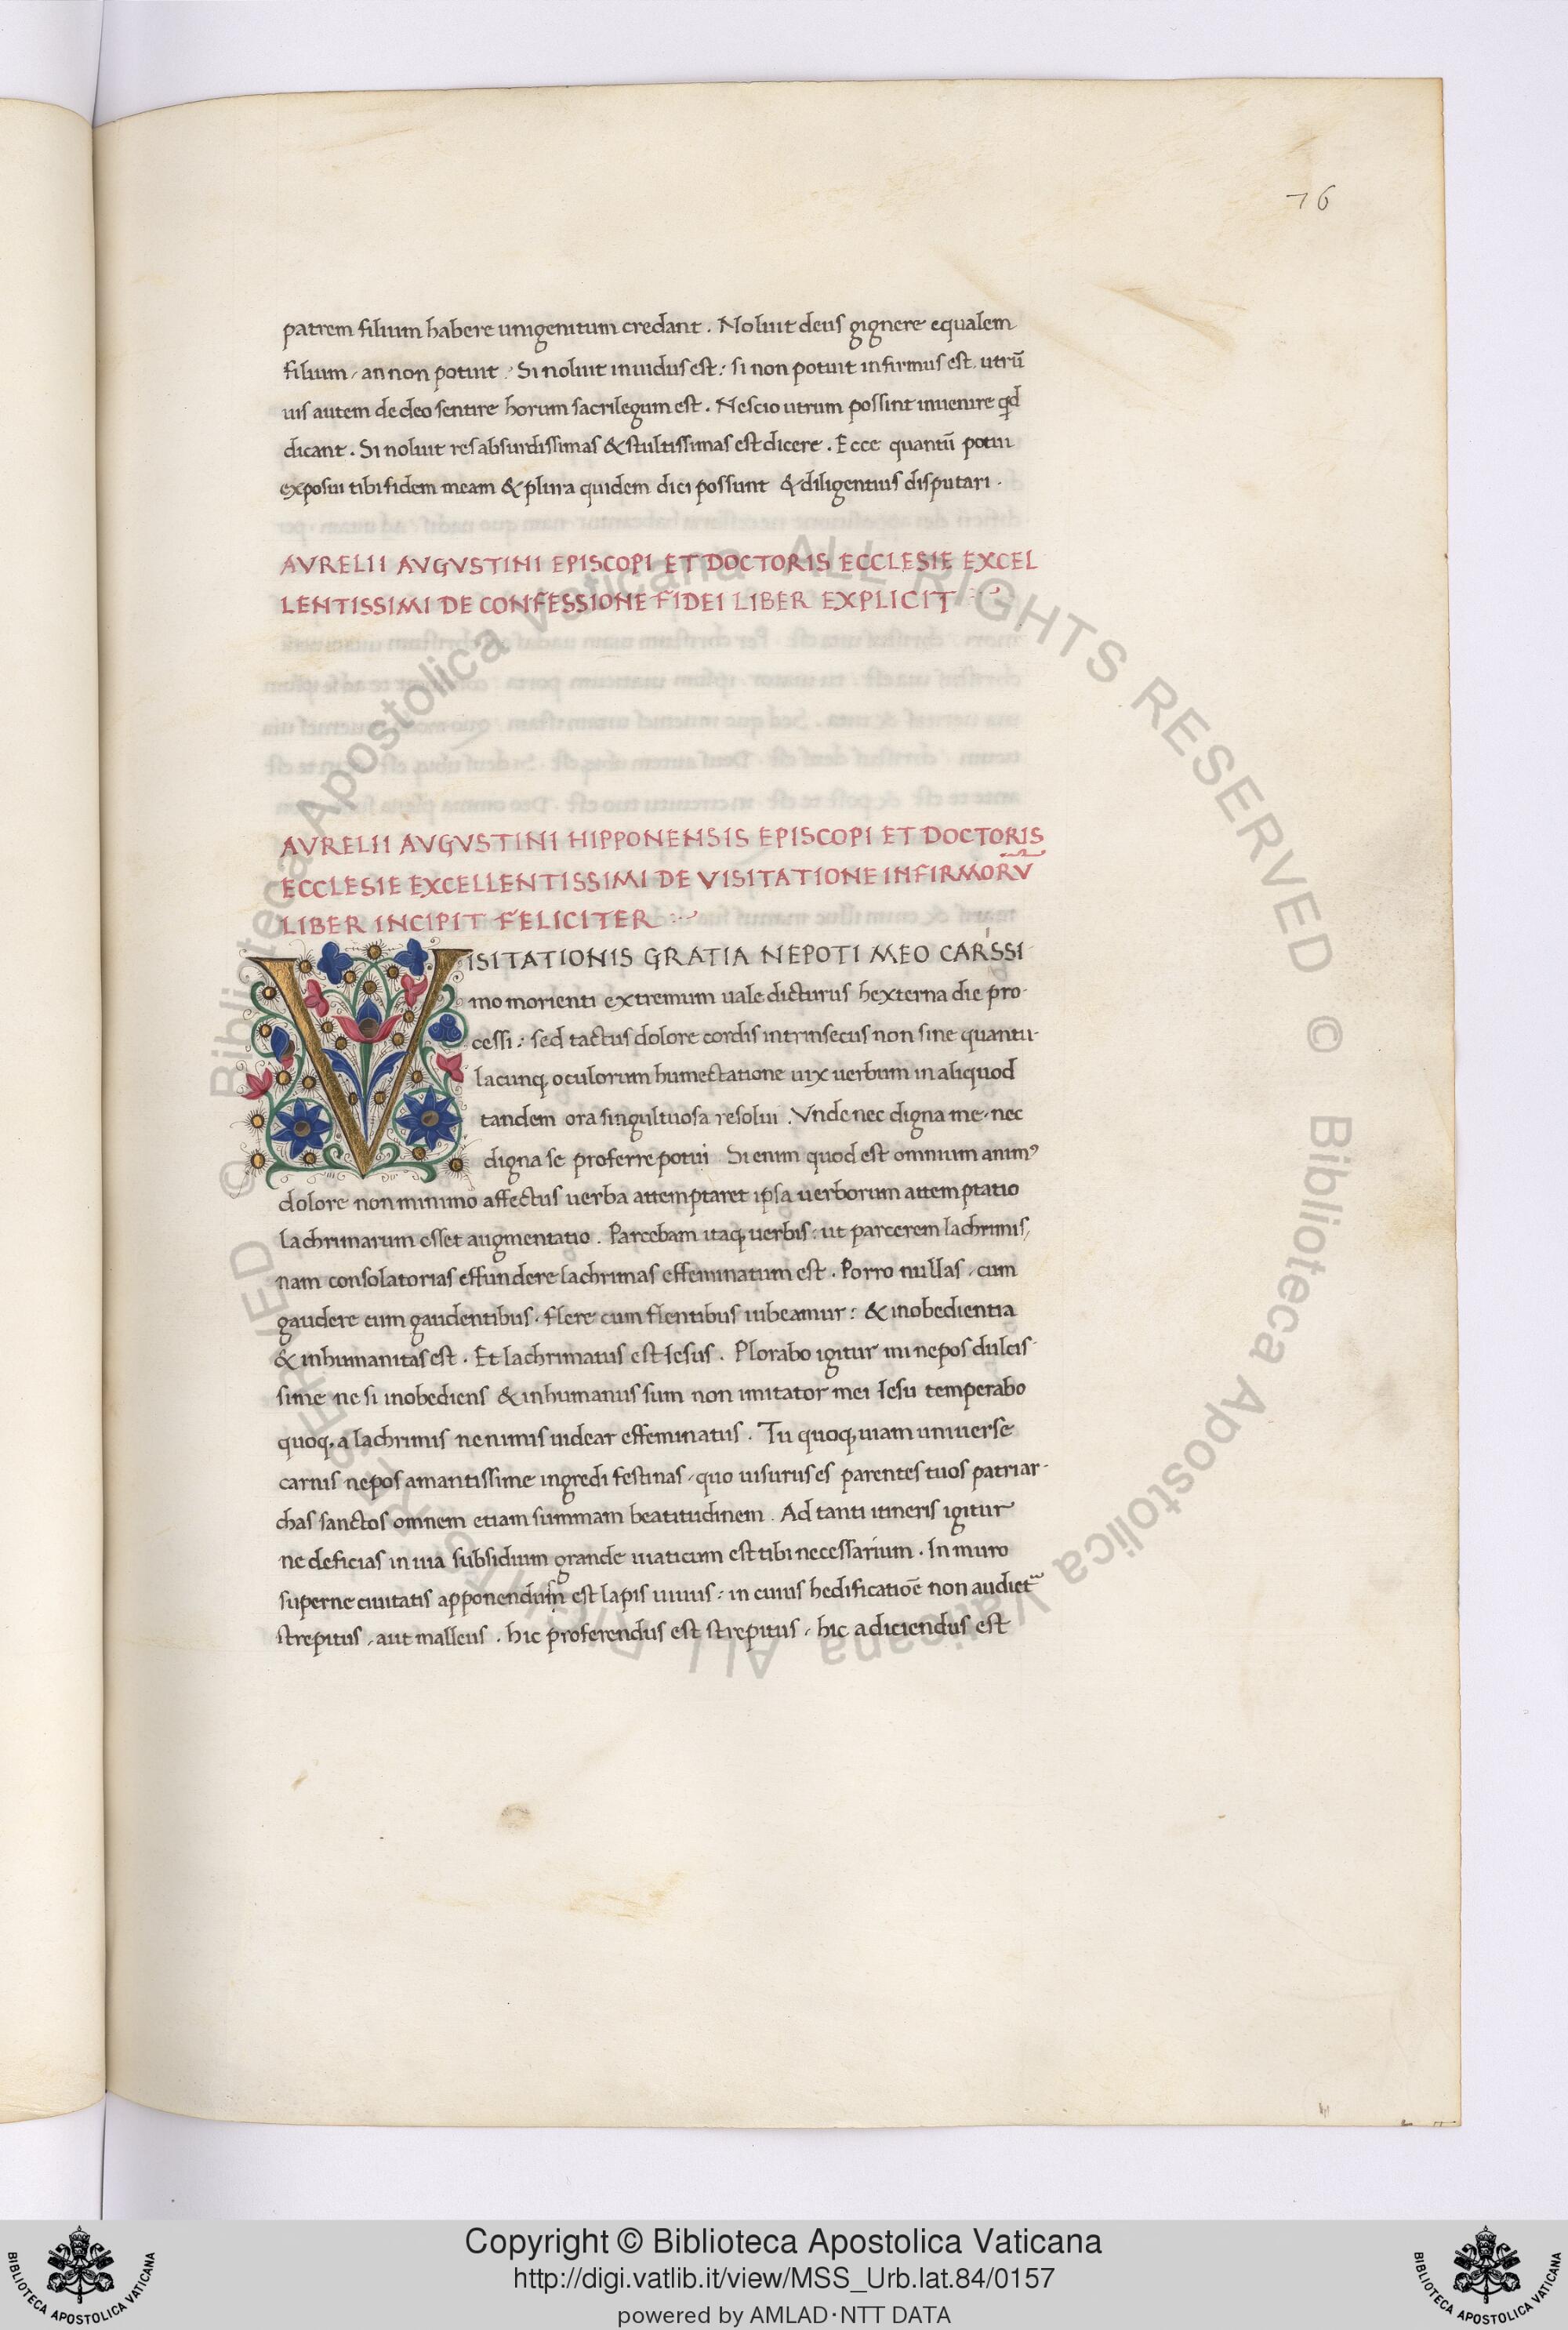 76
patrem filium habere unigenitum credant . Noluit deus gignere equalem
filium / an non potuit . Si noluit inuidus est : si non potuit infirmus est . utrū
uis autem de deo sentire horum sacrilegum est . Nescio utrum possint inuenire qd
dicant . Si noluit res absurdissimas & stultissimas est dicere . Ecce quantū potui
exposui tibi fidem meam & plura quidem dici possunt & diligentius disputari .
AVRELII AVGVSTINI EPISCOPI ET DOCTORIS ECCLESIE EXCEL
LENTISSIMI DE CONFESSIONE FIDEI LIBER EXPLICIT
AVRELII AVGVSTINI HIPPONENSIS EPISCOPI ET DOCTORIS
ECCLESIE EXCELLENTISSIMI DE VISITATIONE INFIRMORV̄
LIBER INCIPIT FELICITER
VISITATIONIS GRATIA NEPOTI MEO CARISSI-
mo morienti extremum uale dicturus hexterna die pro-
cessi : sed tactus dolore cordis intrinsecus non sine quantu-
lacunq; oculorum humectatione uix uerbum in aliquod
tandem ora singultuosa resolui . Vnde nec digna me / nec
digna se proferre potui Si enim quod est omnium animꝰ
dolore non minimo affectus uerba attemptaret ipsa uerborum attemptatio
lachrimarum esset augmentatio . Parcebam itaq; uerbis : ut parcerem lachrimis /
nam consolatorias effundere lachrimas effeminatum est . Porro nullas / cum
gaudere cum gaudentibus / flere cum flentibus iubeamur : & inobedientia
& inhumanitas est . Et lachrimatus est Iesus . Plorabo igitur mi nepos dulcis-
sime ne si inobediens & inhumanus sum non imitator mei Iesu temperabo
quoq; a lachrimis ne nimis uidear effeminatus . Tu quoq; uiam uniuerse
carnis nepos amantissime ingredi festinas / quo uisurus es parentes tuos patriar-
chas sanctos omnem etiam summam beatitudinem . Ad tanti itineris igitur
ne deficias in uia subsidium grande uiaticum est tibi necessarium . In muro
superne ciuitatis apponendum est lapis uiuus : in cuius hedificatioē non audiet᷑
strepitus / aut malleus . hic proferendus est strepitus / hic adiciendus est
© Biblioteca Apostolica Vaticana ALL RIGHTS RESERVED © Biblioteca Apostolica Vaticana ALL RIGHTS RESERVED
Copyright © Biblioteca Apostolica Vaticana
http://digi.vatlib.it/view/MSS_Urb.lat.84/0157
powered by AMLAD·NTT DATA
BIBLIOTECA APOSTOLICA VATICANA
BIBLIOTECA APOSTOLICA VATICANA